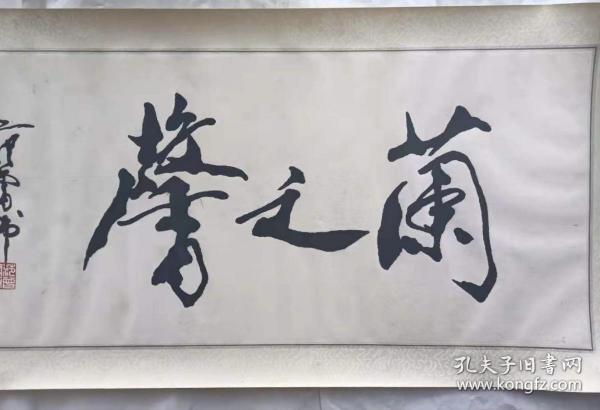 蘭之馨
孔夫子旧書网
www.kongfz.com